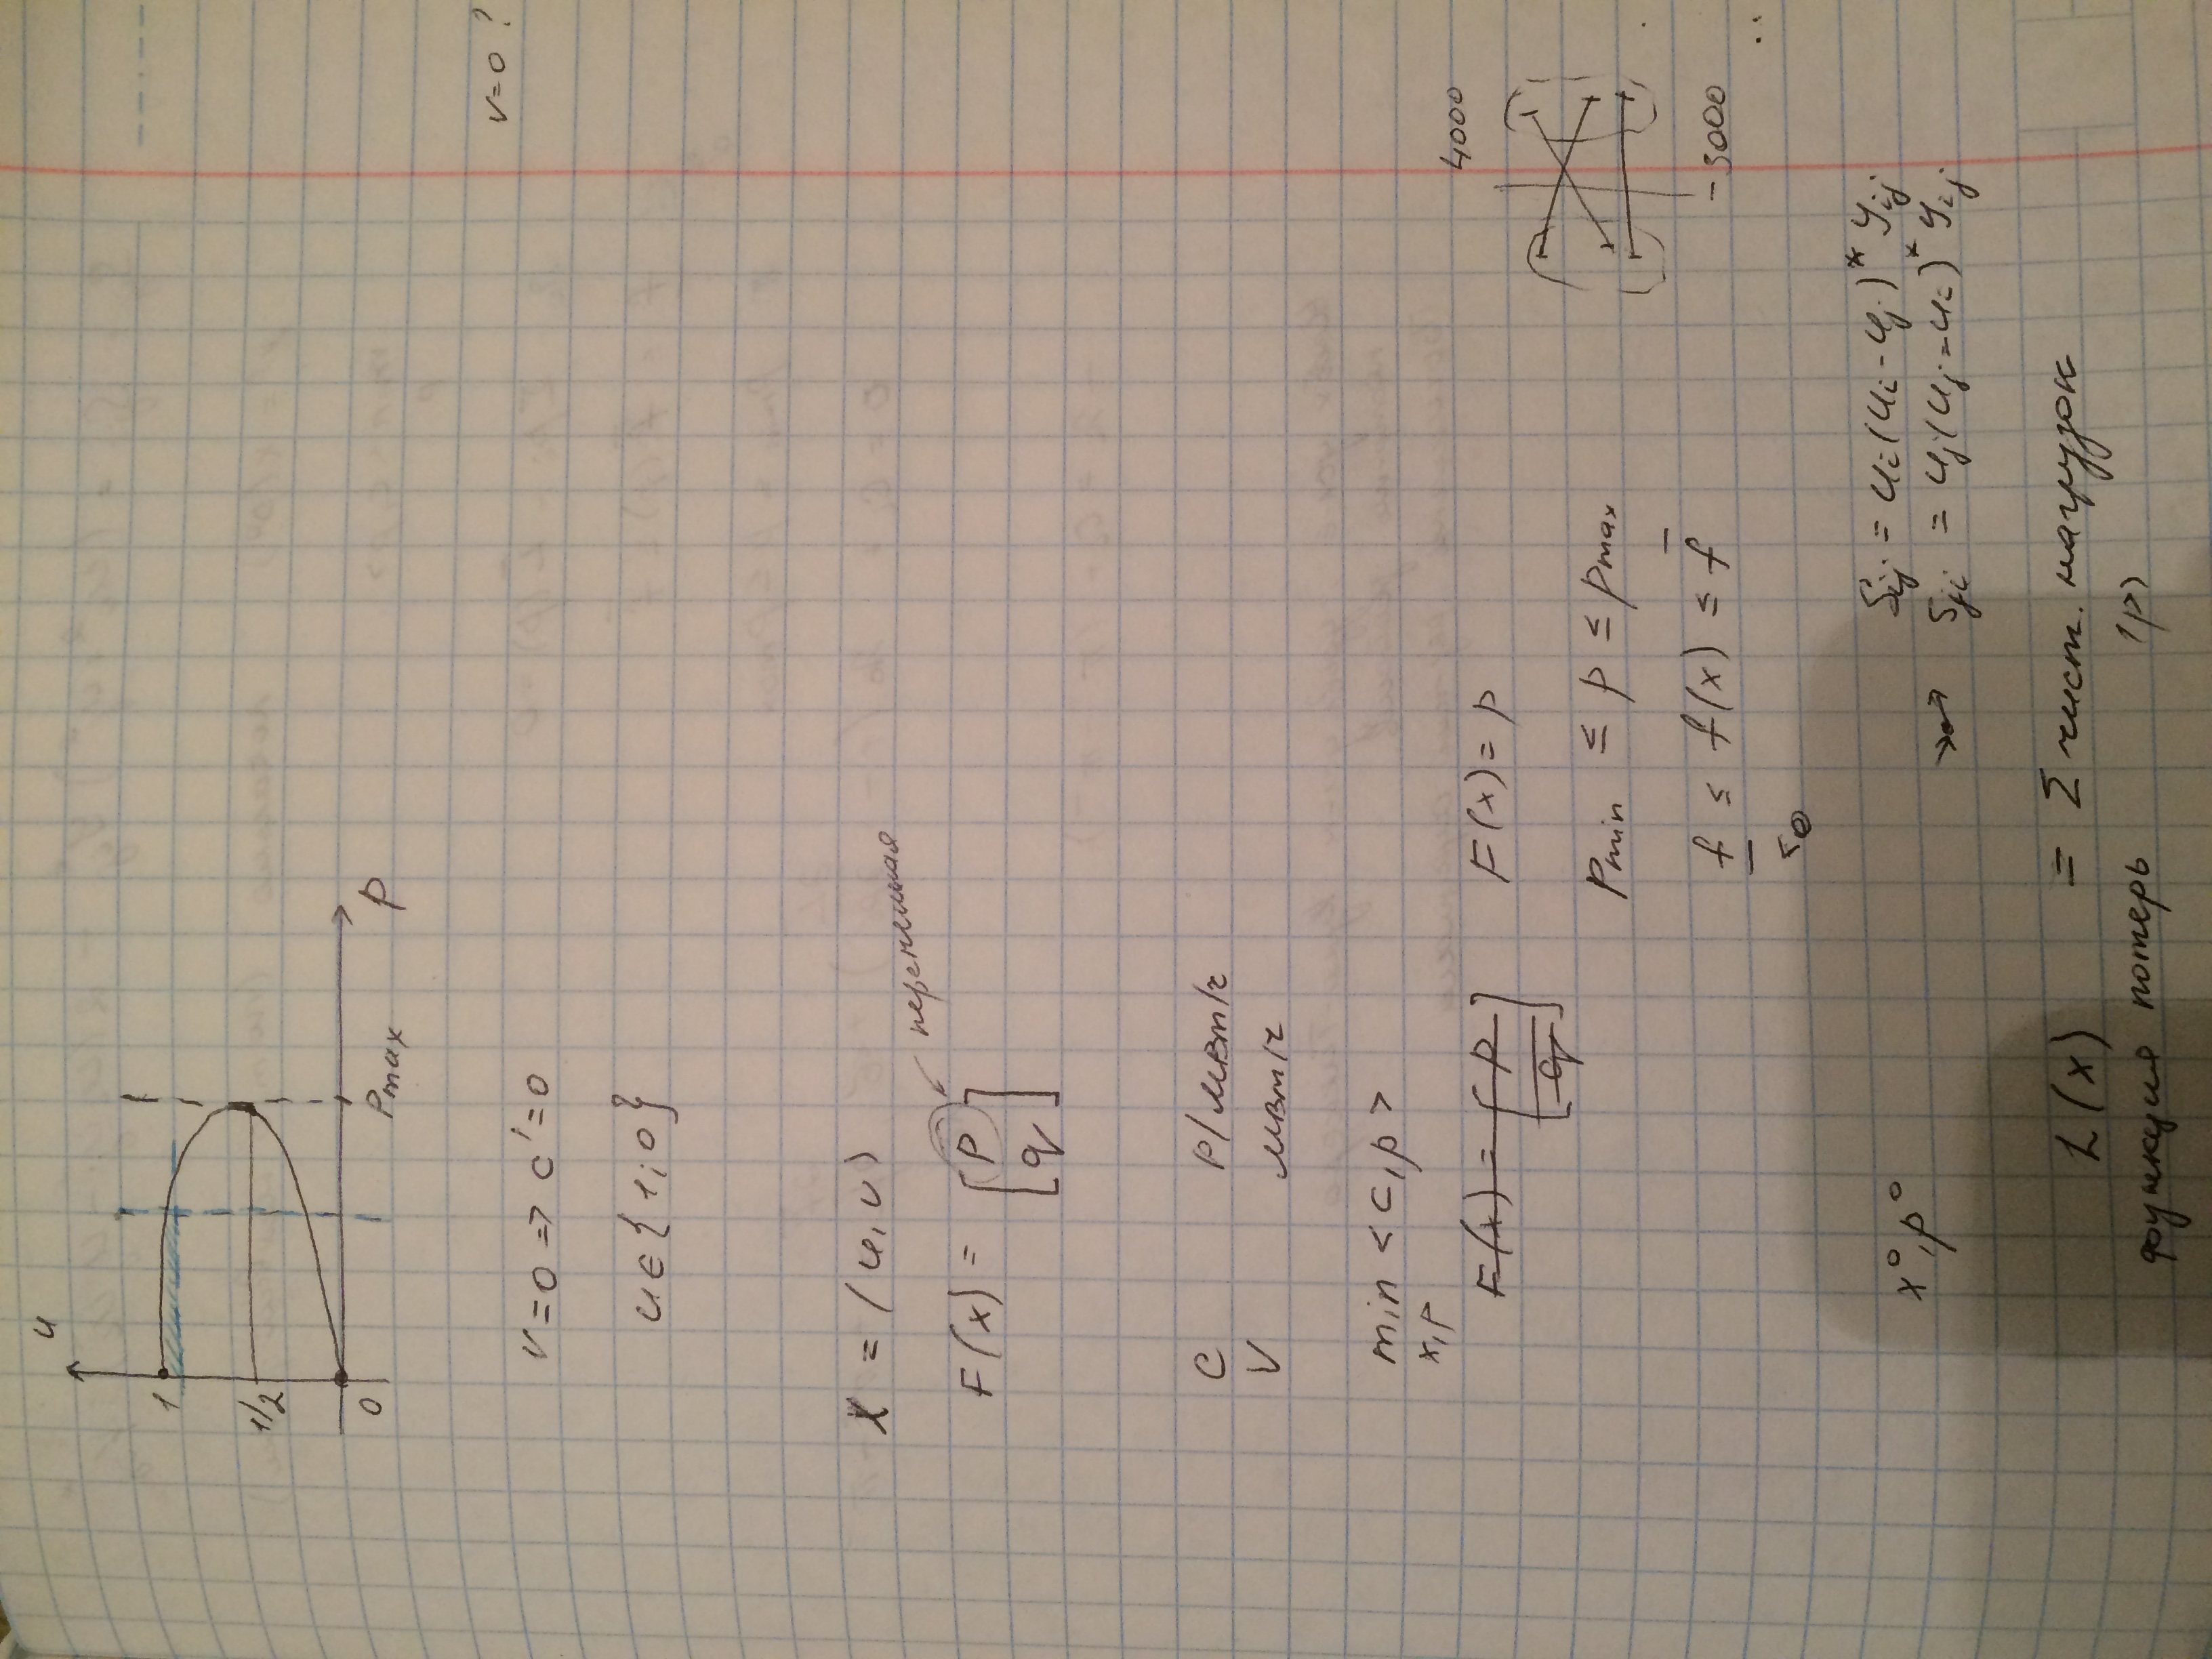 u
1
1/2
0
Pmax
p
v=0 ?
v=0 ⇒ c'=0
u∈{1;0}
x = (u,v)
переменная
F(x) = [p
q]
c P/МВт/ч
v МВт/ч
min <c,p>
x,p
F(x) = [p
q]
F(x) = p
Pmin ≤ p ≤ Pmax
f ≤ f(x) ≤ f
4000
-3000
x⁰,p⁰
Sij = ui(ui-uj)* yij
Sji = uj(uj-ui)* yij
L(x) = Σ чист. нагрузок
функция потерь (p)